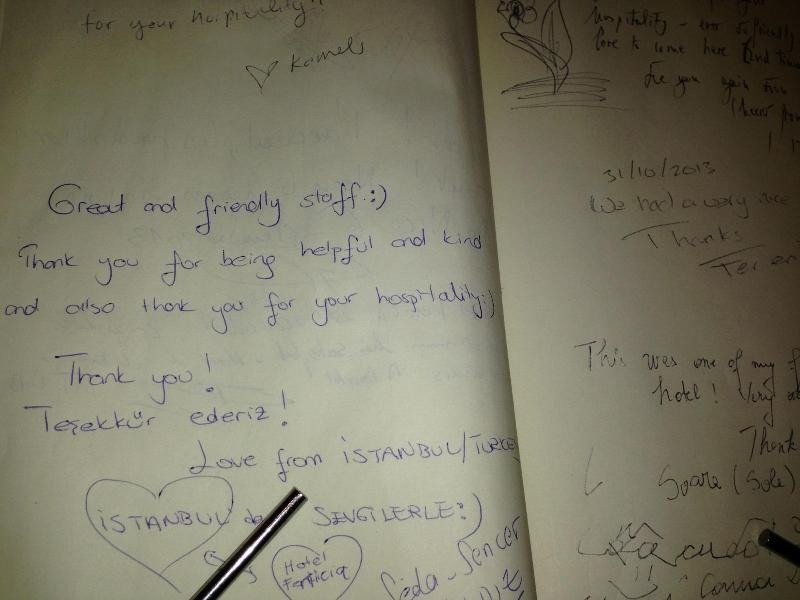 for your hospitality!!
Kamels
Great and friendly staff :)
Thank you for being helpful and kind
and also thank you for your hospitality:)
Thank you!
Teşekkür ederiz!
Love from İSTANBUL/TURKEY
İSTANBUL'da SEVGİLERLE:)
Hotel
Seda - Sencer
hospitality -
love to come here
See you again
31/10/2013
We had a very nice
Thanks
This was one of my
hotel! Very
Thank
Soara (Sole)